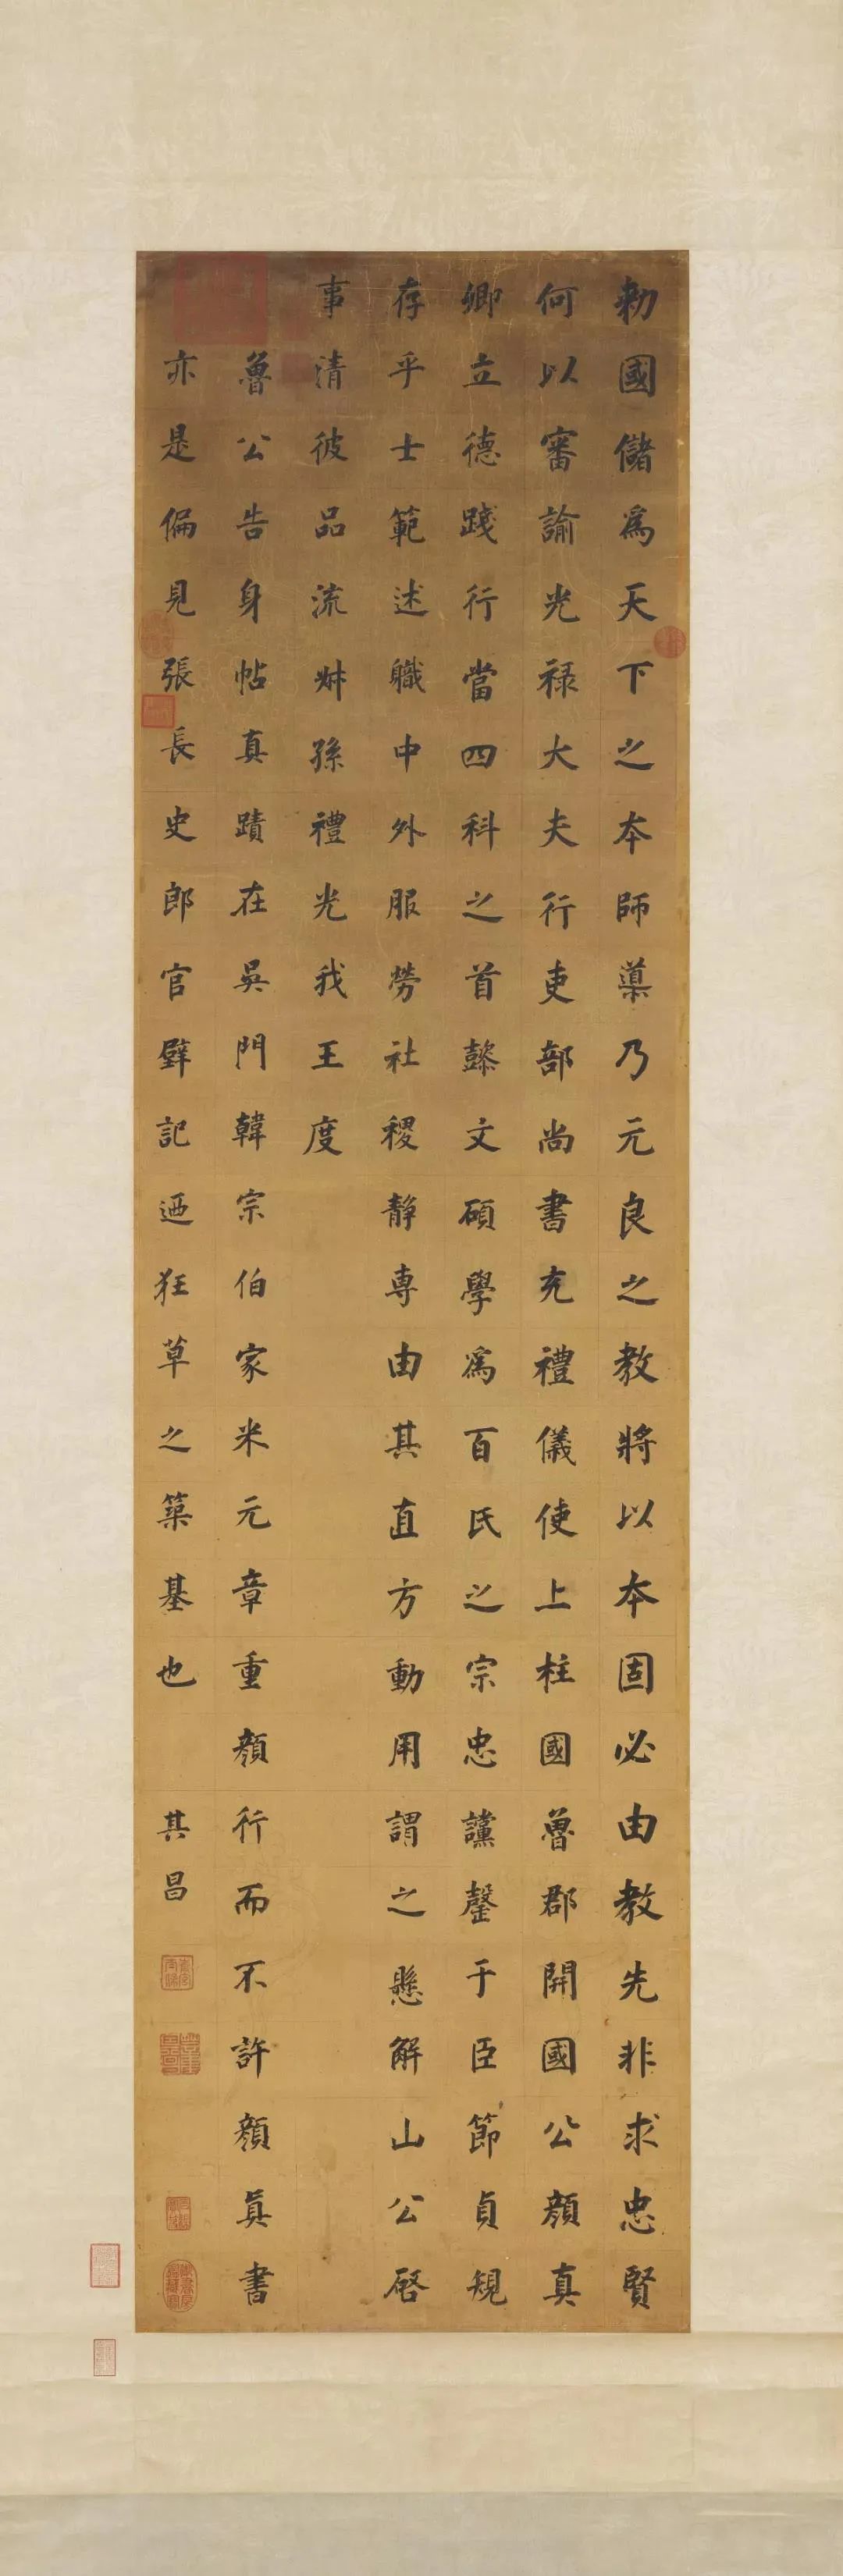 勅國儲爲天下之本師導乃元良之教將以本固必由教先非求忠賢
何以審諭光祿大夫行吏部尚書充禮儀使上柱國魯郡開國公顏真
卿立德踐行當四科之首懿文碩學爲百氏之宗忠讜罄于臣節貞規
存乎士範述職中外服勞社稷靜專由其直方動用謂之懸解山公啓
事清彼品流叔孫禮光我王度
魯公告身帖真蹟在吳門韓宗伯家米元章重顏行而不許顏真書
亦是偏見張長史郎官壁記迺狂草之築基也 其昌